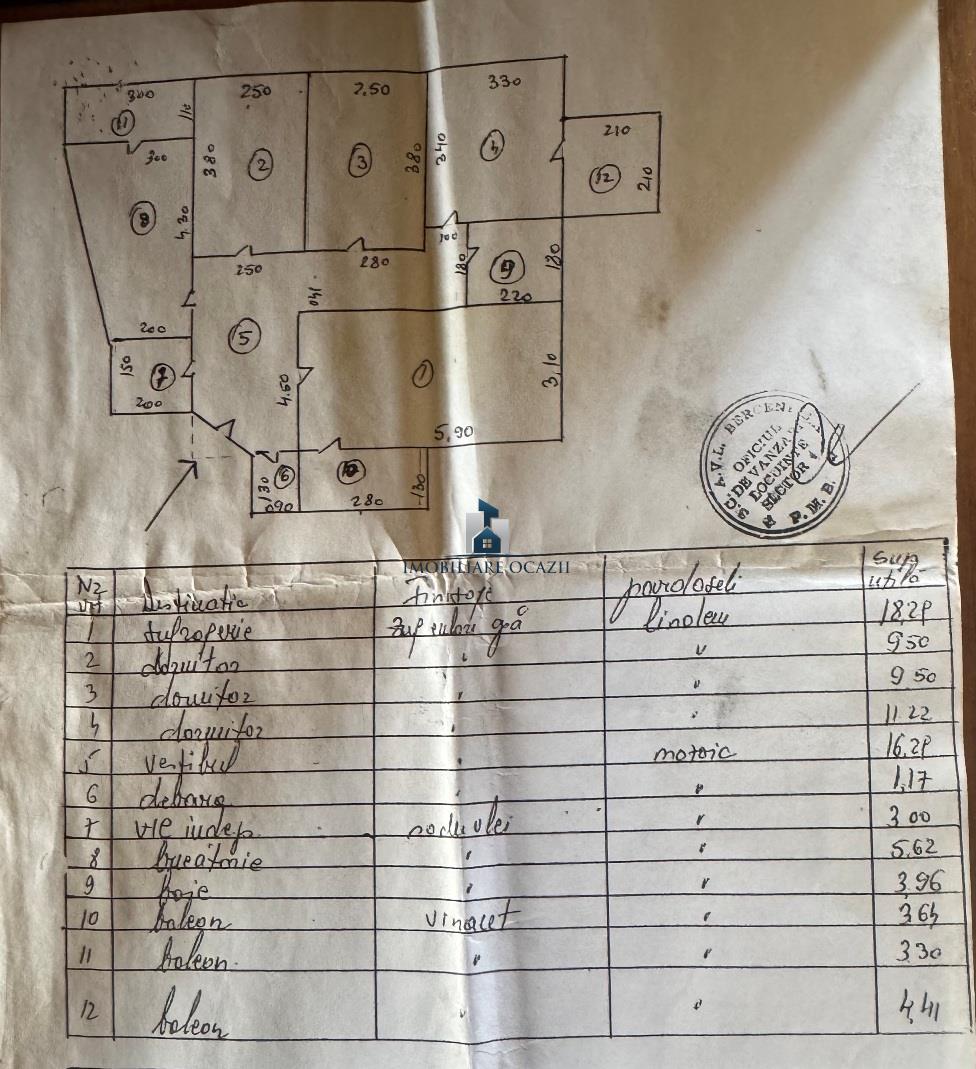 300 250 2.50 330
11 110 210
300 380 2 3 380 340 4 12 210
8 4.30
100 180 9 180
250 280 220
140
5
200
150 7 4.60 1 3,10
200 5,90
130 6 10 130
090 280
S.C. A.V.L. BERCENI S.A.
OFICIUL
DE VANZARE
LOCUINTE
SECTOR 4
P.M.B.
IMOBILIARE.OCAZII
Nr Destinatia Finisaje pardoseli sup utilă
1 sufragerie linoleu 18,29
2 dormitor " " 9,50
3 dormitor " " 9 50
4 dormitor " " 11.22
5 vestibul " mozaic 16,29
6 debara " " 1,17
7 WC indep. " 3 00
8 bucătărie " " 5,62
9 baie " " 3,96
10 balcon vinacet " 3,64
11 balcon " " 3 30
12 balcon " " 4,41